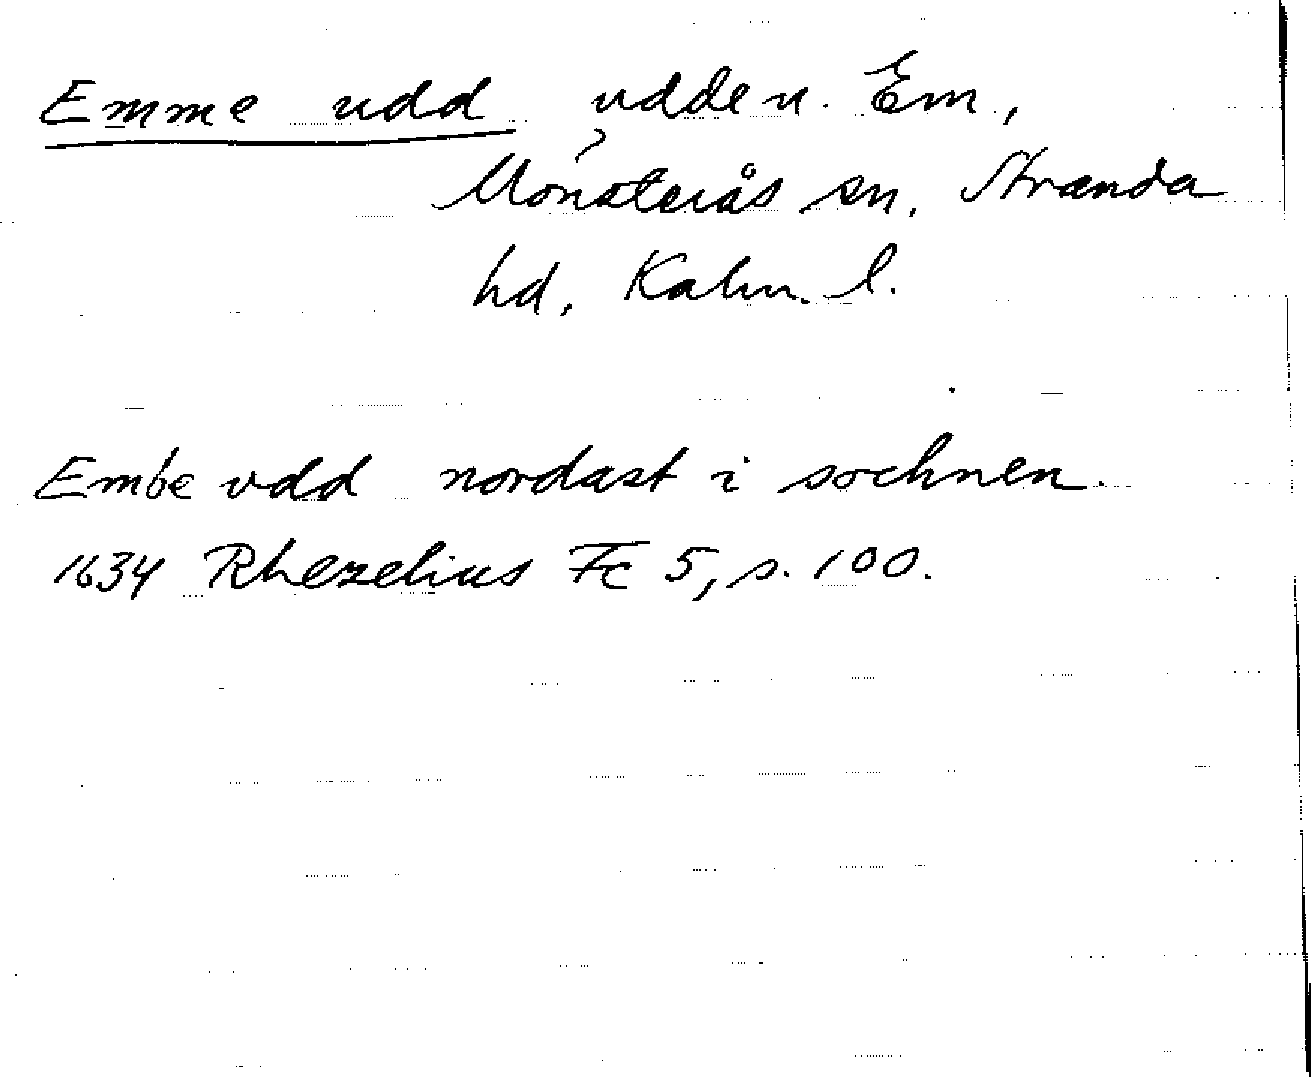 Emme udd udde n. Em,
Mönsterås sn, Stranda
hd, Kalm. l.
Embe vdd nordast i sochnen.
1634 Rhezelius Fc 5, s. 100.